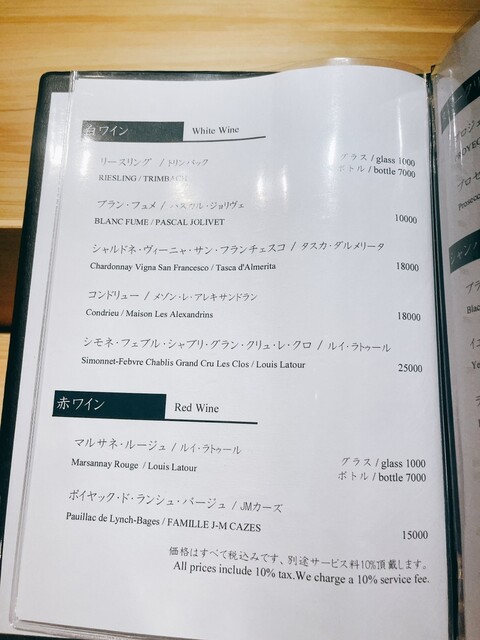 白ワイン White Wine
リースリング / トリンバック グラス / glass 1000
RIESLING / TRIMBACH ボトル / bottle 7000
ブラン・フュメ / パスカル・ジョリヴェ
BLANC FUME / PASCAL JOLIVET 10000
シャルドネ・ヴィーニャ・サン・フランチェスコ / タスカ・ダルメリータ
Chardonnay Vigna San Francesco / Tasca d'Almerita 18000
コンドリュー / メゾン・レ・アレキサンドラン
Condrieu / Maison Les Alexandrins 18000
シモネ・フェブル・シャブリ・グラン・クリュ・レ・クロ / ルイ・ラトゥール
Simonnet-Febvre Chablis Grand Cru Les Clos / Louis Latour 25000
赤ワイン Red Wine
マルサネ・ルージュ / ルイ・ラトゥール グラス / glass 1000
Marsannay Rouge / Louis Latour ボトル / bottle 7000
ポイヤック・ド・ランシュ・バージュ / JMカーズ
Pauillac de Lynch-Bages / FAMILLE J-M CAZES 15000
価格はすべて税込みです、別途サービス料10%頂戴します。
All prices include 10% tax.We charge a 10% service fee.